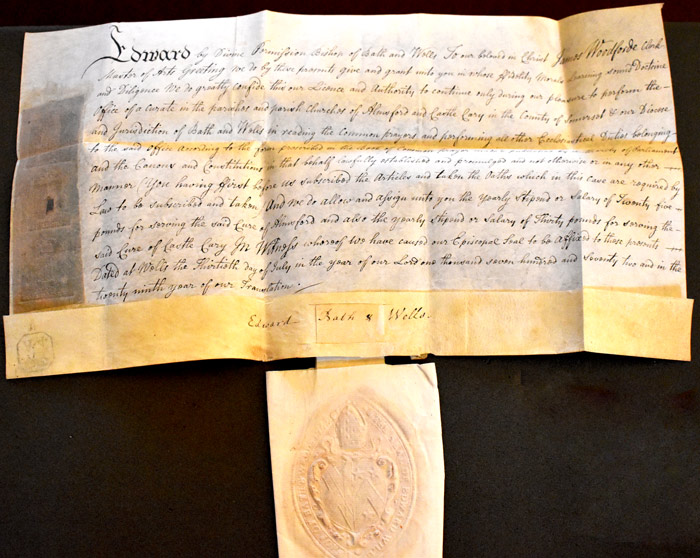 Edward by Divine Permission Bishop of Bath and Wells To our beloved in Christ James Woodforde Clerk
Master of Arts Greeting We do by these presents give and grant unto you in whose Fidelity Morals Learning sound Doctrine
and Diligence We do greatly confide this our Licence and Authority to continue only during our pleasure to perform the
Office of a Curate in the parishes and parish Churches of Alnwsford and Castle Cary in the County of Somerset & our Diocese
and Jurisdiction of Bath and Wells in reading the Common prayers and performing all other Ecclesiastical Duties belonging
to the said office According to the form prescribed in the Book of Common of Parliament
and the Canons and Constitutions in that behalf lawfully established and promulged and not otherwise or in any other
Manner (You having first before us subscribed the Articles and taken the Oaths which in this case are required by
Law to be subscribed and taken And we do allow and assign unto you the yearly Stipend or Salary of Twenty five
pounds for serving the said Cure of Alnwsford and also the yearly Stipend or Salary of Thirty pounds for serving the
said Cure of Castle Cary In Witness whereof we have caused our Episcopal Seal to be Affixed to these presents
Dated at Wells the Thirtieth day of July in the year of our Lord one thousand seven hundred and seventy two and in the
twenty ninth year of our Translation.
Edward Bath & Wells.